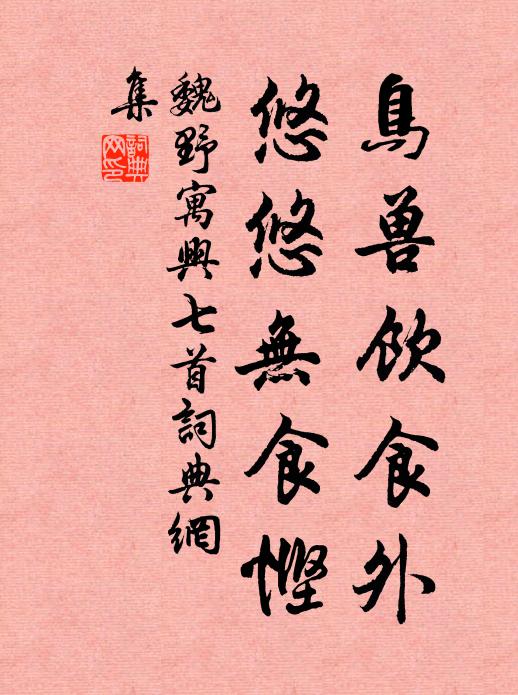 鳥兽饮食外
悠悠無食慳
魏野寓興七首詞典網
集
詞典
网印